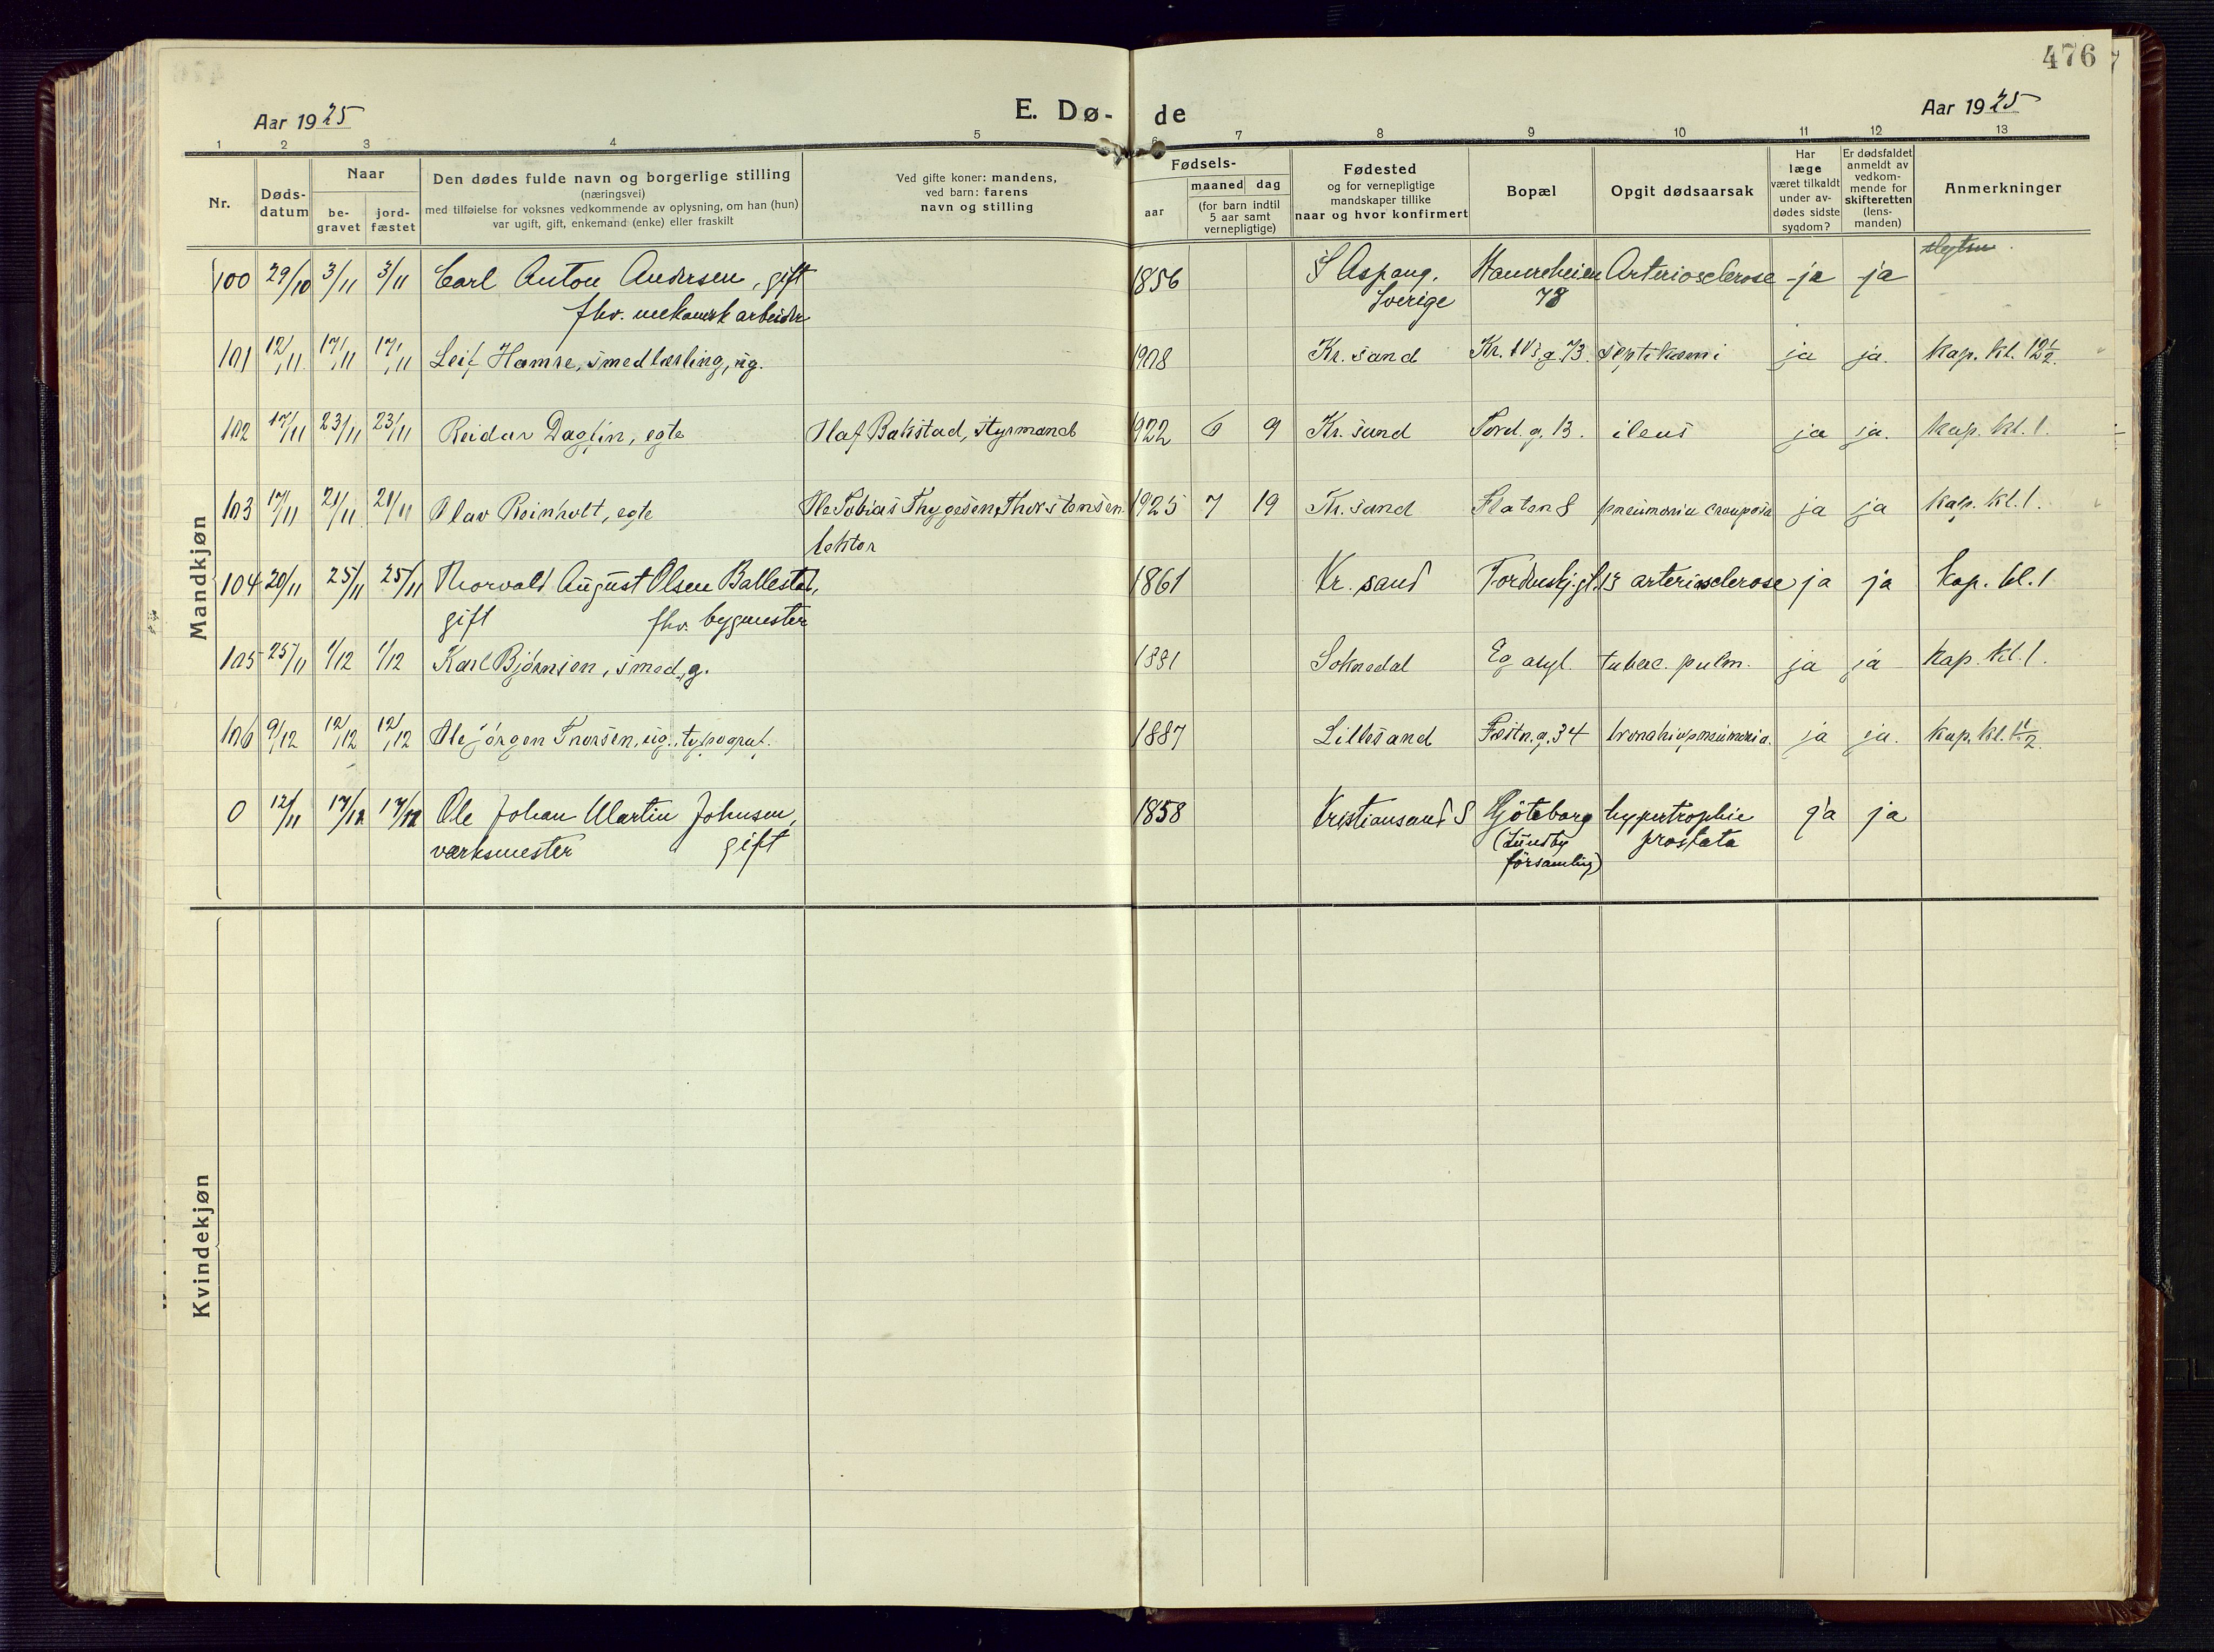 476
Aar 1925
E. Dø-
de
Aar 1925
1 2 3 4 5 6 7 8 9 10 11 12 13
Nr.
Døds-
datum
Naar
be-
gravet
jord-
fæstet
Den dødes fulde navn og borgerlige stilling
(næringsvei)
med tilføielse for voksnes vedkommende av oplysning, om han (hun)
var ugift, gift, enkemand (enke) eller fraskilt
Ved gifte koner: mandens,
ved barn: farens
navn og stilling
Fødsels-
aar
maaned dag
(for barn indtil
5 aar samt
vernepligtige)
Fødested
og for vernepligtige
mandskaper tillike
naar og hvor konfirmert
Bopæl
Opgit dødsaarsak
Har
læge
været tilkaldt
under av-
dødes sidste
sygdom?
Er dødsfaldet
anmeldt av
vedkom-
mende for
skifteretten
(lens-
manden)
Anmerkninger
Mandkjøn
100 29/10 3/11 3/11 Carl Anton Andersen, gift 1856 S Aspang, Arteriosclerose ja ja
fhv. mekanisk arbeider Sverige 78
101 12/11 17/11 17/11 Leif Hamre, smedlærling, ug. 1908 Kr. sand Kr. IVs g. 73. septikæmi ja ja. kap. kl. 12½.
102 17/11 23/11 23/11 Reidar Dagfin, egte Olaf Bakstad, styrmand 1922 6 9 Kr. sand Tord. g. 13. ileus ja ja. kap. kl. 1.
103 17/11 21/11 21/11 Olav Reinholt, egte Ole Tobias Thygesen Thorstensen 1925 7 19 Kr. sand Flaten 8 pneumonia crouposa ja ja kap. kl. 1.
lektor
104 20/11 25/11 25/11 Thorvald August Olsen Ballestad, 1861 Kr. sand Tordenskj. gt. 13 arteriosclerose ja ja kap. kl. 1
gift fhv. bygmester
105 25/11 1/12 1/12 Karl Bjørnsen, smed, g. 1881 Soknedal Eg asyl. tuberc. pulm. ja ja kap. kl. 1.
106 9/12 12/12 12/12 Ole Jørgen Thorsen, ug., typograf. 1887 Lillesand Festn. g. 34 bronchiopneumonia. ja ja. kap. kl. 1½.
0 12/11 17/12 17/12 Ole Johan Martin Johnsen, 1858 Kristiansand S Göteborg hypertrophie ja ja
værksmester gift (Lundby prostata
församling)
Kvindekjøn